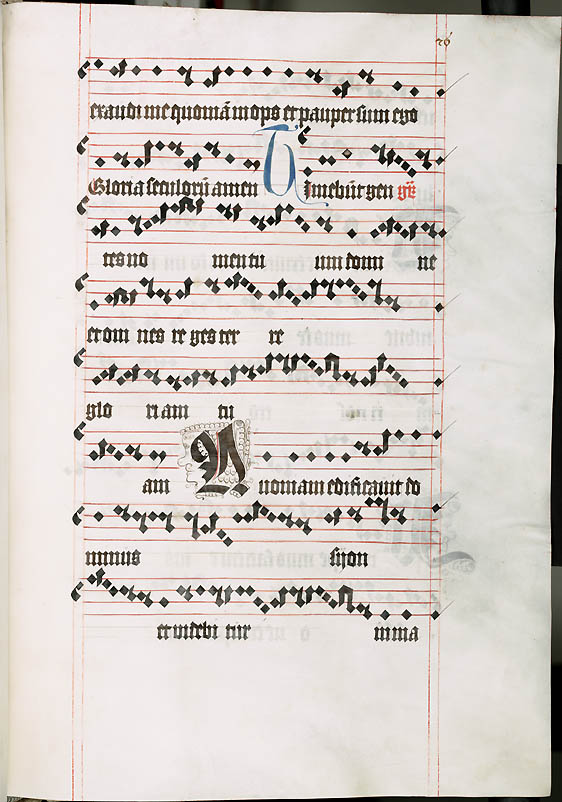 26
exaudi me quoniā inops et pauper sum ego
Gloria seculorū amen Timebūt gen gr̄
tes no men tu um domi ne
et om nes re ges ter re
glo ri am tu
am Quoniam edificavit do
minus syon
et videbi tur in ma